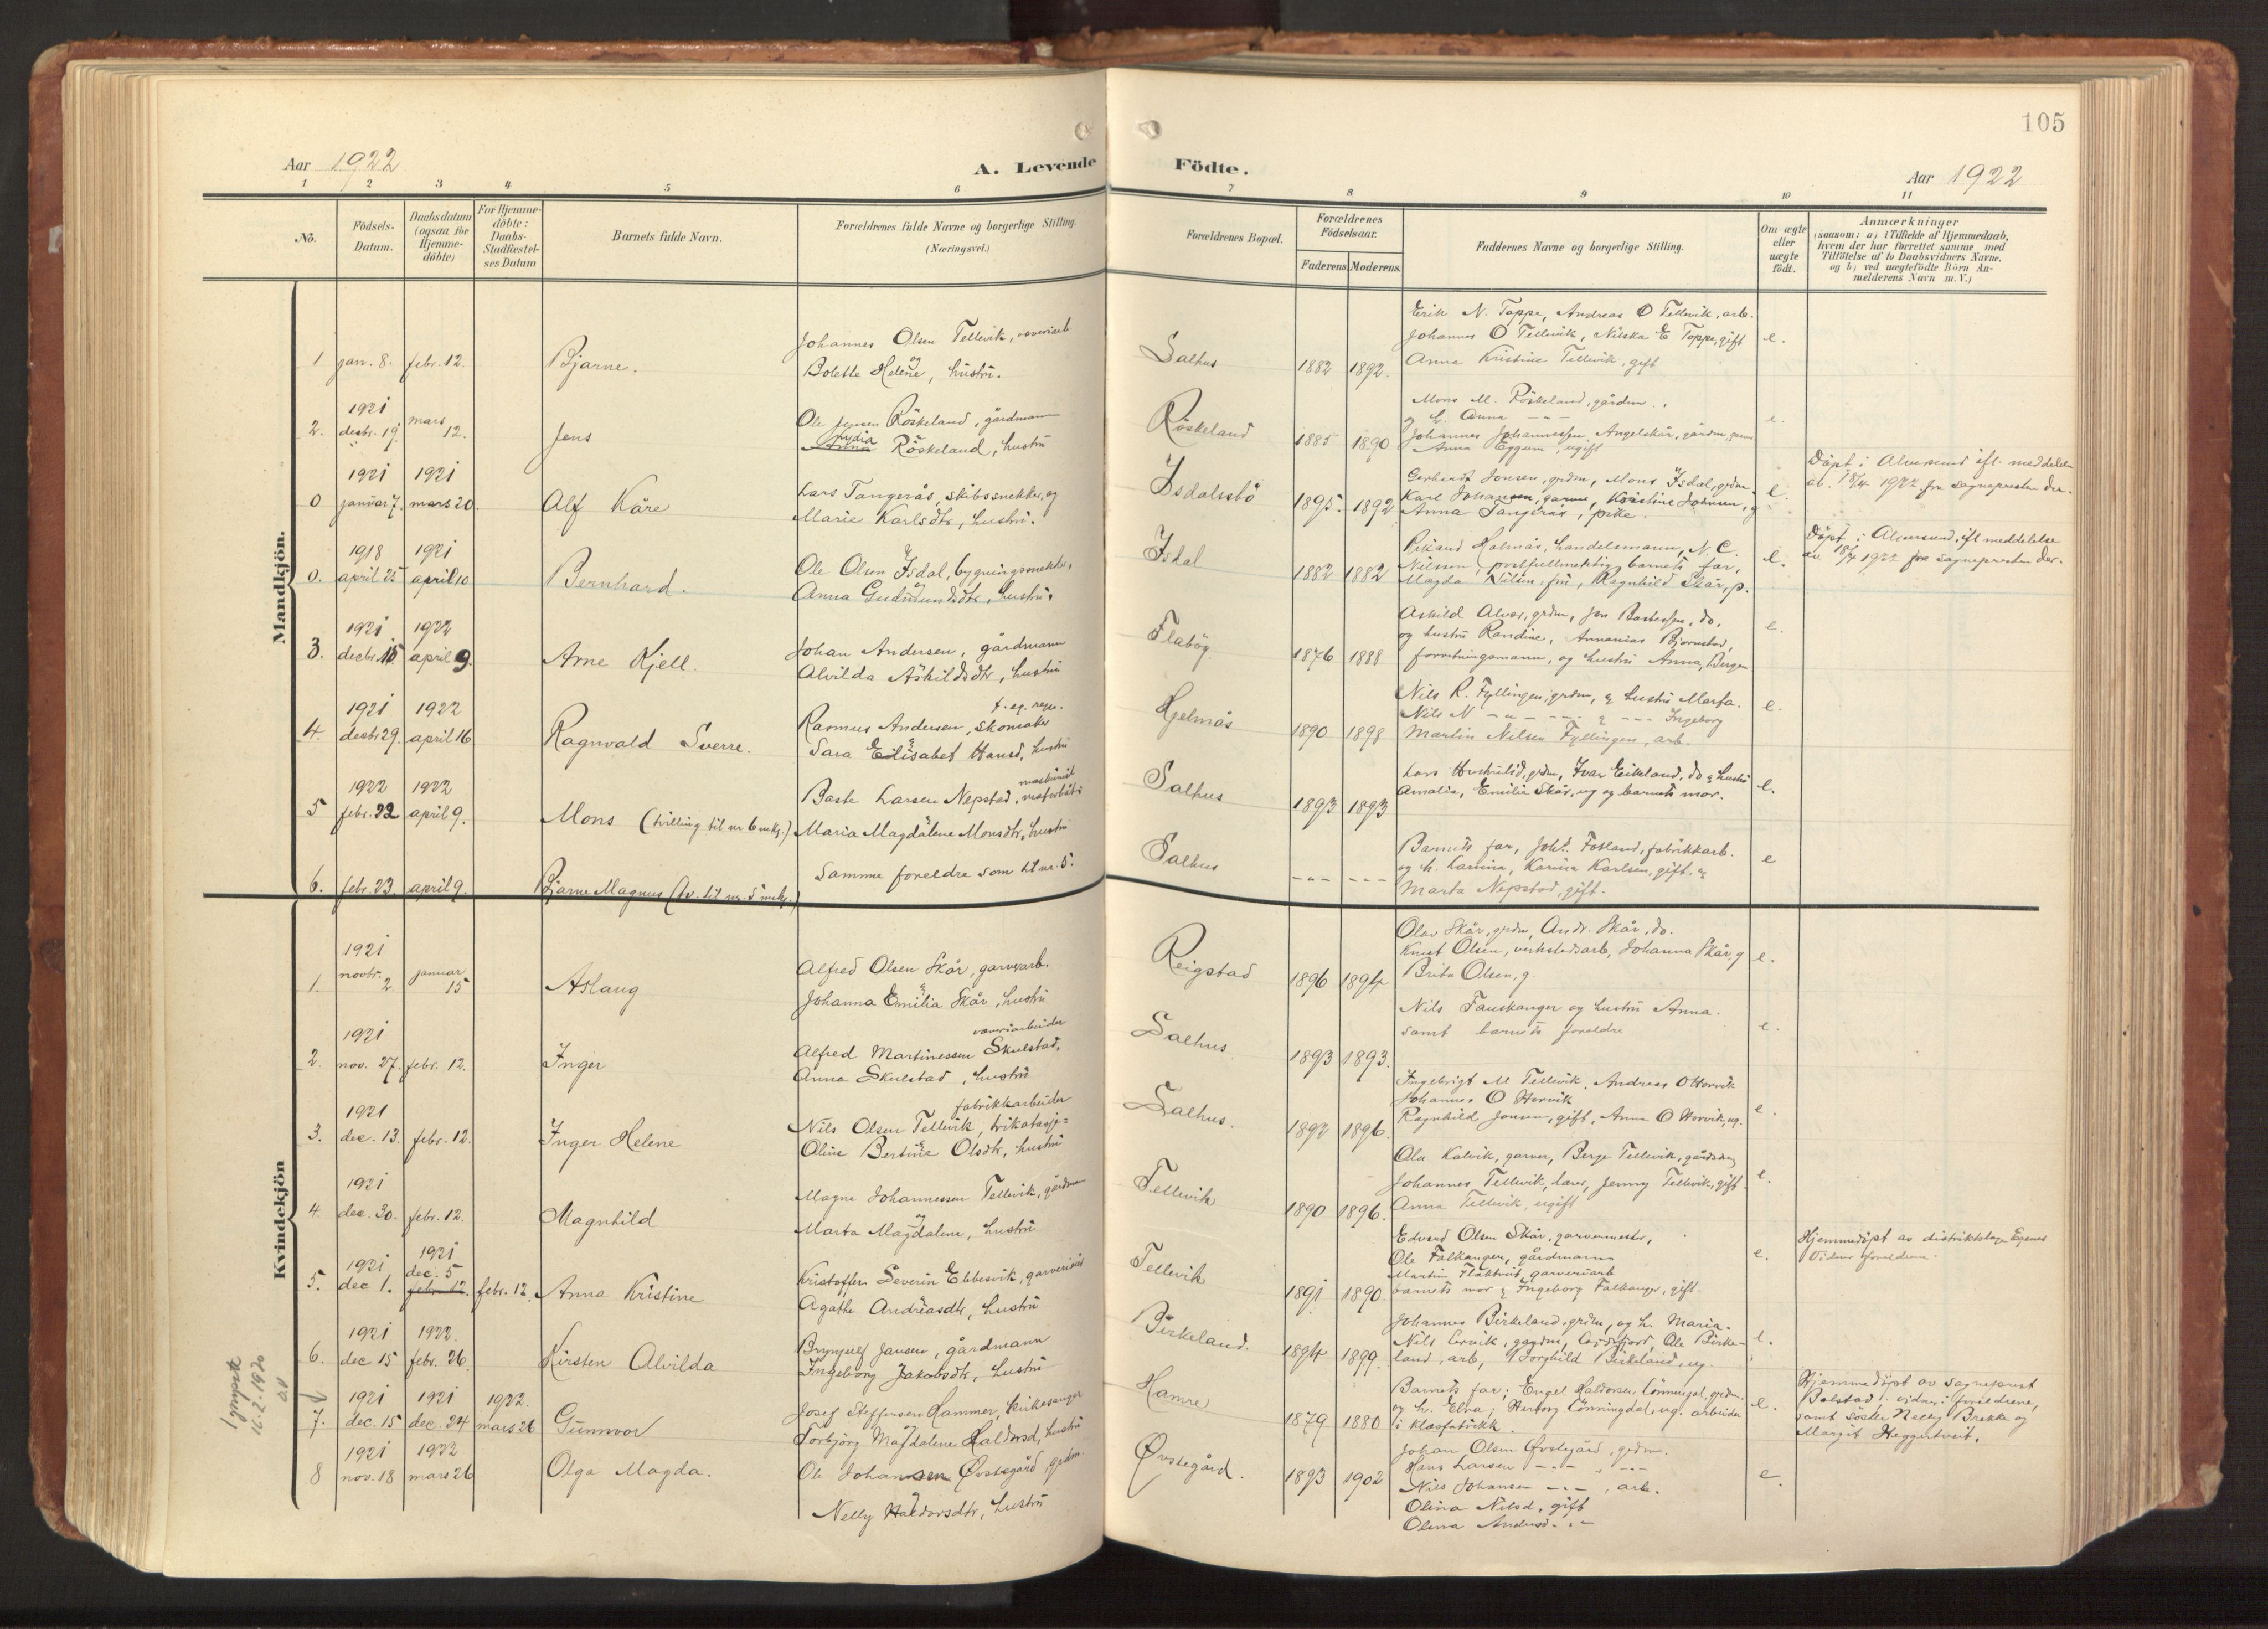 105
Aar 1922
A. Levende Födte.
Aar 1922
1 2 3 4 5 6 7 8 9 10 11
No.
Födsels-
Datum.
Daabsdatum
(ogsaa for
Hjemme-
döbte)
For Hjemme-
döbte:
Daabs-
Stadfæstel-
ses Datum
Barnets fulde Navn.
Forældrenes fulde Navne og borgerlige Stilling.
(Næringsvei.)
Forældrenes Bopæl.
Forældrenes
Födselsaar.
Faderens Moderens.
Faddernes Navne og borgerlige Stilling.
Om ægte
eller
uægte
födt.
Anmærkninger
(saasom: a) i Tilfælde af Hjemmedaab,
hvem der har forrettet samme med
Tilföielse af to Daabsvidners Navne.
og b) ved uægtefödte Börn An-
melderens Navn m.V.)
Mandkjön.
1 jan. 8. febr. 12. Bjarne.
Johannes Olsen Tellevik, væveriarb.
og
Bolette Helene, hustru.
Salhus 1882 1892.
Erik N. Toppe, Andreas O Tellevik, arb.
Johannes O Tellevik, Nilska E Toppe, gift
Anna Kristine Tellevik, gift
e.
1921
2. decbr. 19. mars 12. Jens
Ole Jensen Röskeland, gårdmann
Lydia
Anna Röskeland, hustru
Röskeland 1885 1890
Mons M. Röskeland, gårdm.
og h. Anna - " -
Johannes Johannessen Angelskår, gårdm,
Anna Eggum, ugift
e.
1921 1921
0 januar 7. mars 20. Alf Kåre
Lars Tangerås, skibssnekker, og
Marie Karlsdtr, hustru.
Isdalstö 1895. 1892
Gerhardt Jonsen, grdm, Mons Isdal, grdm.
Karl Johansen, garver, Kristine Johnsen, g
Anna Tangerås, pike.
e.
Döpt i Alversund ifl. meddelelse
av 18/4 1922 fra sognepresten der.
1918 1921
0. april 25 april 10 Bernhard.
Ole Olsen Isdal, bygningssnekker,
og
Anna Gudmundsdtr, hustru.
Isdal 1882 1882
Rikard Holmås, handelsmann, N. C.
Nilsen, postfullmektig, barnets far,
Magda Nilsen, frü, Ragnhild Skår, p.
e.
Döpt i Alversund, ifl meddelelse
av 18/4 1922 fra sognepresten der.
1921 1922
3. decbr. 15 april 9. Arne Kjell.
Johan Andersen, gårdmann
Alvilda Askildsdtr, hustru
Flatöy 1876 1888
Askild Alver, grdm, Jon Bastesen, do.
og hustru Randine, Annanias Bjørnstad,
forretningsmann, og hustru Anna, Bergen
e.
1921 1922
4. decbr 29. april 16 Ragnvald Sverre.
f. eg. regn.
Rasmus Andersen, skomaker
Sara Elisabet Hansd, hustru
Hjelmås 1890 1898
Nils R. Fyllingen, grdm, & hustru Marta.
Nils N - " - - " - & - - - Ingeborg
Martin Nilsen Fyllingen, arb.
e.
1922 1922
5 febr. 22 april 9. Mons (tvilling til nr 6 mkj.)
maskinist
Baste Larsen Nepstad, motorbåt &
Maria Magdalene Monsdtr, hustru
Salhus 1893 1893
Lars Hustulid, grdm, Ivar Eikeland, do & hustru
Amalie, Emilie Skår, ug og barnets mor.
e.
6. febr. 23 april 9. Bjarne Magnus (tv. til nr. 5 mkj.)
Samme foreldre som til nr. 5.
Salhus - " - - " -
Barnets far, Johs. Fosland, fabrikkarb.
og h. Lamina, Karina Karlsen, gift. &
Marta Nepstad, gift.
e
Kvindekjön
1921
1. novbr. 2 januar 15 Aslaug
Alfred Olsen Skår, garveriarb.
&
Johanna Emilia Skår, hustru
Reigstad 1896 1894
Olav Skår, grdm, Andr. Skår, do.
Knut Olsen, verkstedsarb, Johanna Skår, g
Brita Olsen, g.
e.
1921
2. nov. 27. febr. 12. Inger
væveriarbeider
Alfred Martinessen Skulstad,
Anna Skulstad, hustru
Salhus 1893 1893.
Nils Fauskanger og hustru Anna.
samt barnets foreldre
e.
1921
3. dec. 13. febr. 12. Inger Helene
fabrikkarbeider
Nils Olsen Tellevik, trikotasje=
&
Oline Bertine Olsdtr, hustru
Salhus. 1892 1896.
Ingebrigt M Tellevik, Andreas O Horvik
Johannes O Horvik
Ragnhild Jonsen, gift, Anna O Horvik, ug.
e.
1921
4. dec. 30. febr. 12. Magnhild
Magne Johannessen Tellevik, gårdm
og
Marta Magdalene, hustru
Tellevik 1890 1896.
Ola Kalvik, garver, Berge Tellevik, gårdsdrg
Johannes Tellevik, lærer, Jenny Tellevik, gift.
Anna Tellevik, ugift
e.
1921 1921
5. dec 1. dec. 5 febr. 12. febr. 12. Anna Kristine
Kristoffer Severin Ebbesvik, garveriarb
Agathe Andreasdtr, hustru
Tellevik 1891 1890
Edvard Olsen Skår, garvermester,
Ole Falkanger, gårdmann
Martin Flaktveit, garveriarb
barnets mor & Ingeborg Falkanger, gift.
e.
Hjemmedöpt av distriktslæge Egenes
Vidner foreldrene.
1921 1922.
6. dec 15 febr. 26. Kirsten Alvilda
Brynjulf Jansen, gårdmann
Ingeborg Jakobsdtr, hustru
Birkeland. 1894 1899.
Johannes Birkeland, grdm, og h. Maria.
Nils Lervik, Ole Birke-
land, arb, Borghild Birkeland, ug.
e.
1921 1921 1922.
7. dec. 15 dec. 24 mars 26 Gunnvor
Josef Steffensen Hammer, kirkesanger
Torbjörg Magdalene Haldorsd, hustru
Hamre 1879 1880
Barnets far; Engel Haldorsen Lönningdal, grdm.
og h. Elna; Herborg Lönningdal, ug. arbeider
i klæsfabrikk.
e.
Hjemmedöpt av sogneprest
Bolstad; vidner: foreldrene,
samt söster Nelly Brekke og
Margit Heggertveit.
1921 1922
8 nov. 18 mars 26 Olga Magda.
Ole Johansen Øvstegård, grdm.
&
Nelly Haldorsdtr, hustru
Øvstegård. 1893 1902
Johan Olsen Øvstegård, grdm.
Hans Larsen - " - " - " -
Nils Johansen - " -, arb.
Olina Nilsd, gift
Olina Andersd. " -
e.
16.2.1970